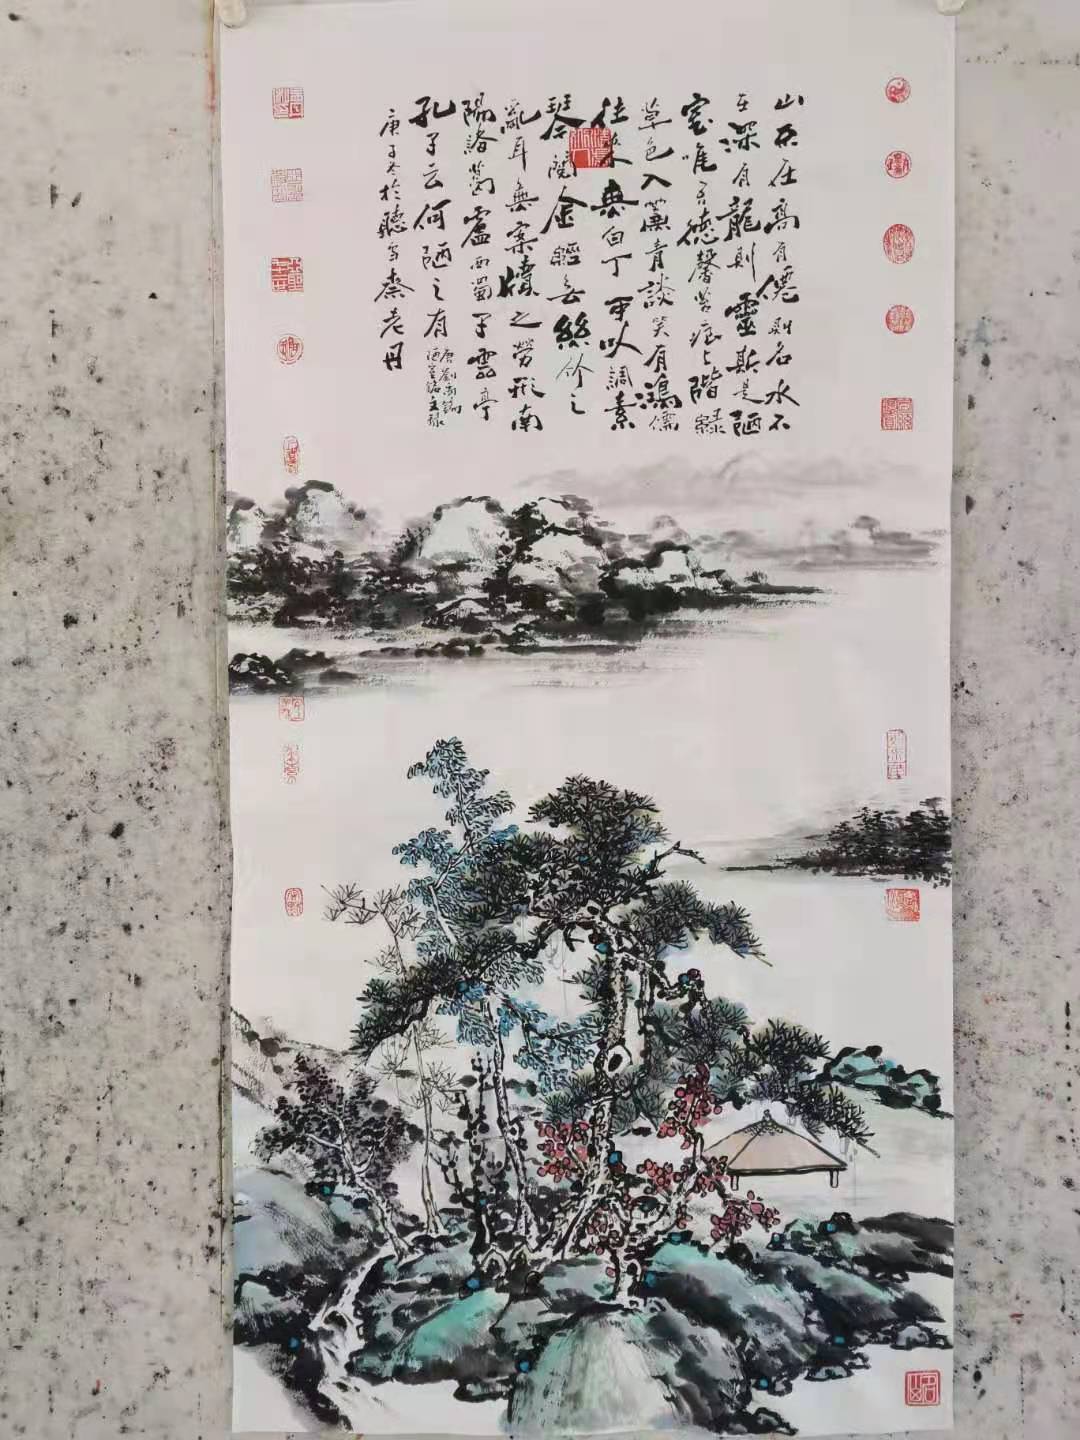 山不在高有僊則名水不
在深有龍則靈斯是陋
室唯吾德馨苔痕上階綠
草色入簾青談笑有鴻儒
往來無白丁可以調素
琴閱金經無絲竹之
亂耳無案牘之勞形南
陽諸葛盧西蜀子雲亭
孔子云何陋之有
唐劉禹錫
陋室銘全錄
庚子冬於聽雪齋老丹